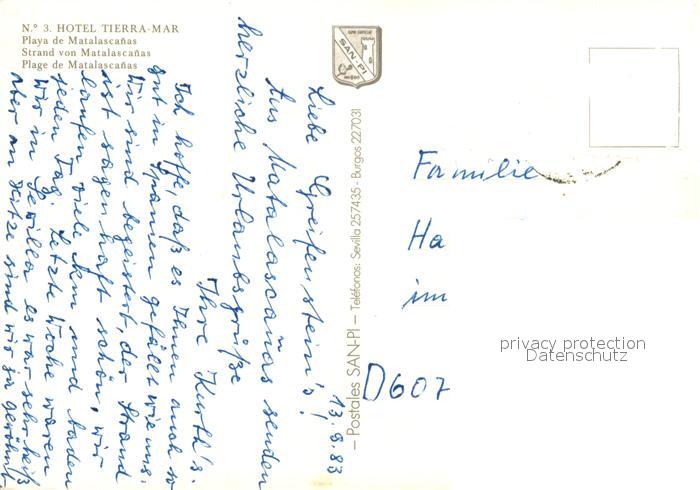 N.º 3. HOTEL TIERRA-MAR
Playa de Matalascañas
Strand von Matalascañas
Plage de Matalascañas
SAN-PI
13.8.83
Liebe Greifenstein's!
Aus Matalascanas senden
herzliche Urlaubsgrüße
Ihre Kurth's.
Ich hoffe, daß es Ihnen auch so
gut in Spanien gefällt wie uns.
Wir sind begeistert, der Strand
ist sagenhaft schön, wir
laufen viele km und baden
jeden Tag. Letzte Woche waren
wir in Sevilla es war sehr heiß
aber an Hitze sind wir ja gewöhnt
— Postales SAN-PI — Teléfonos: Sevilla 257435 - Burgos 227031
Familie
Ha
im
D607
privacy protection
Datenschutz